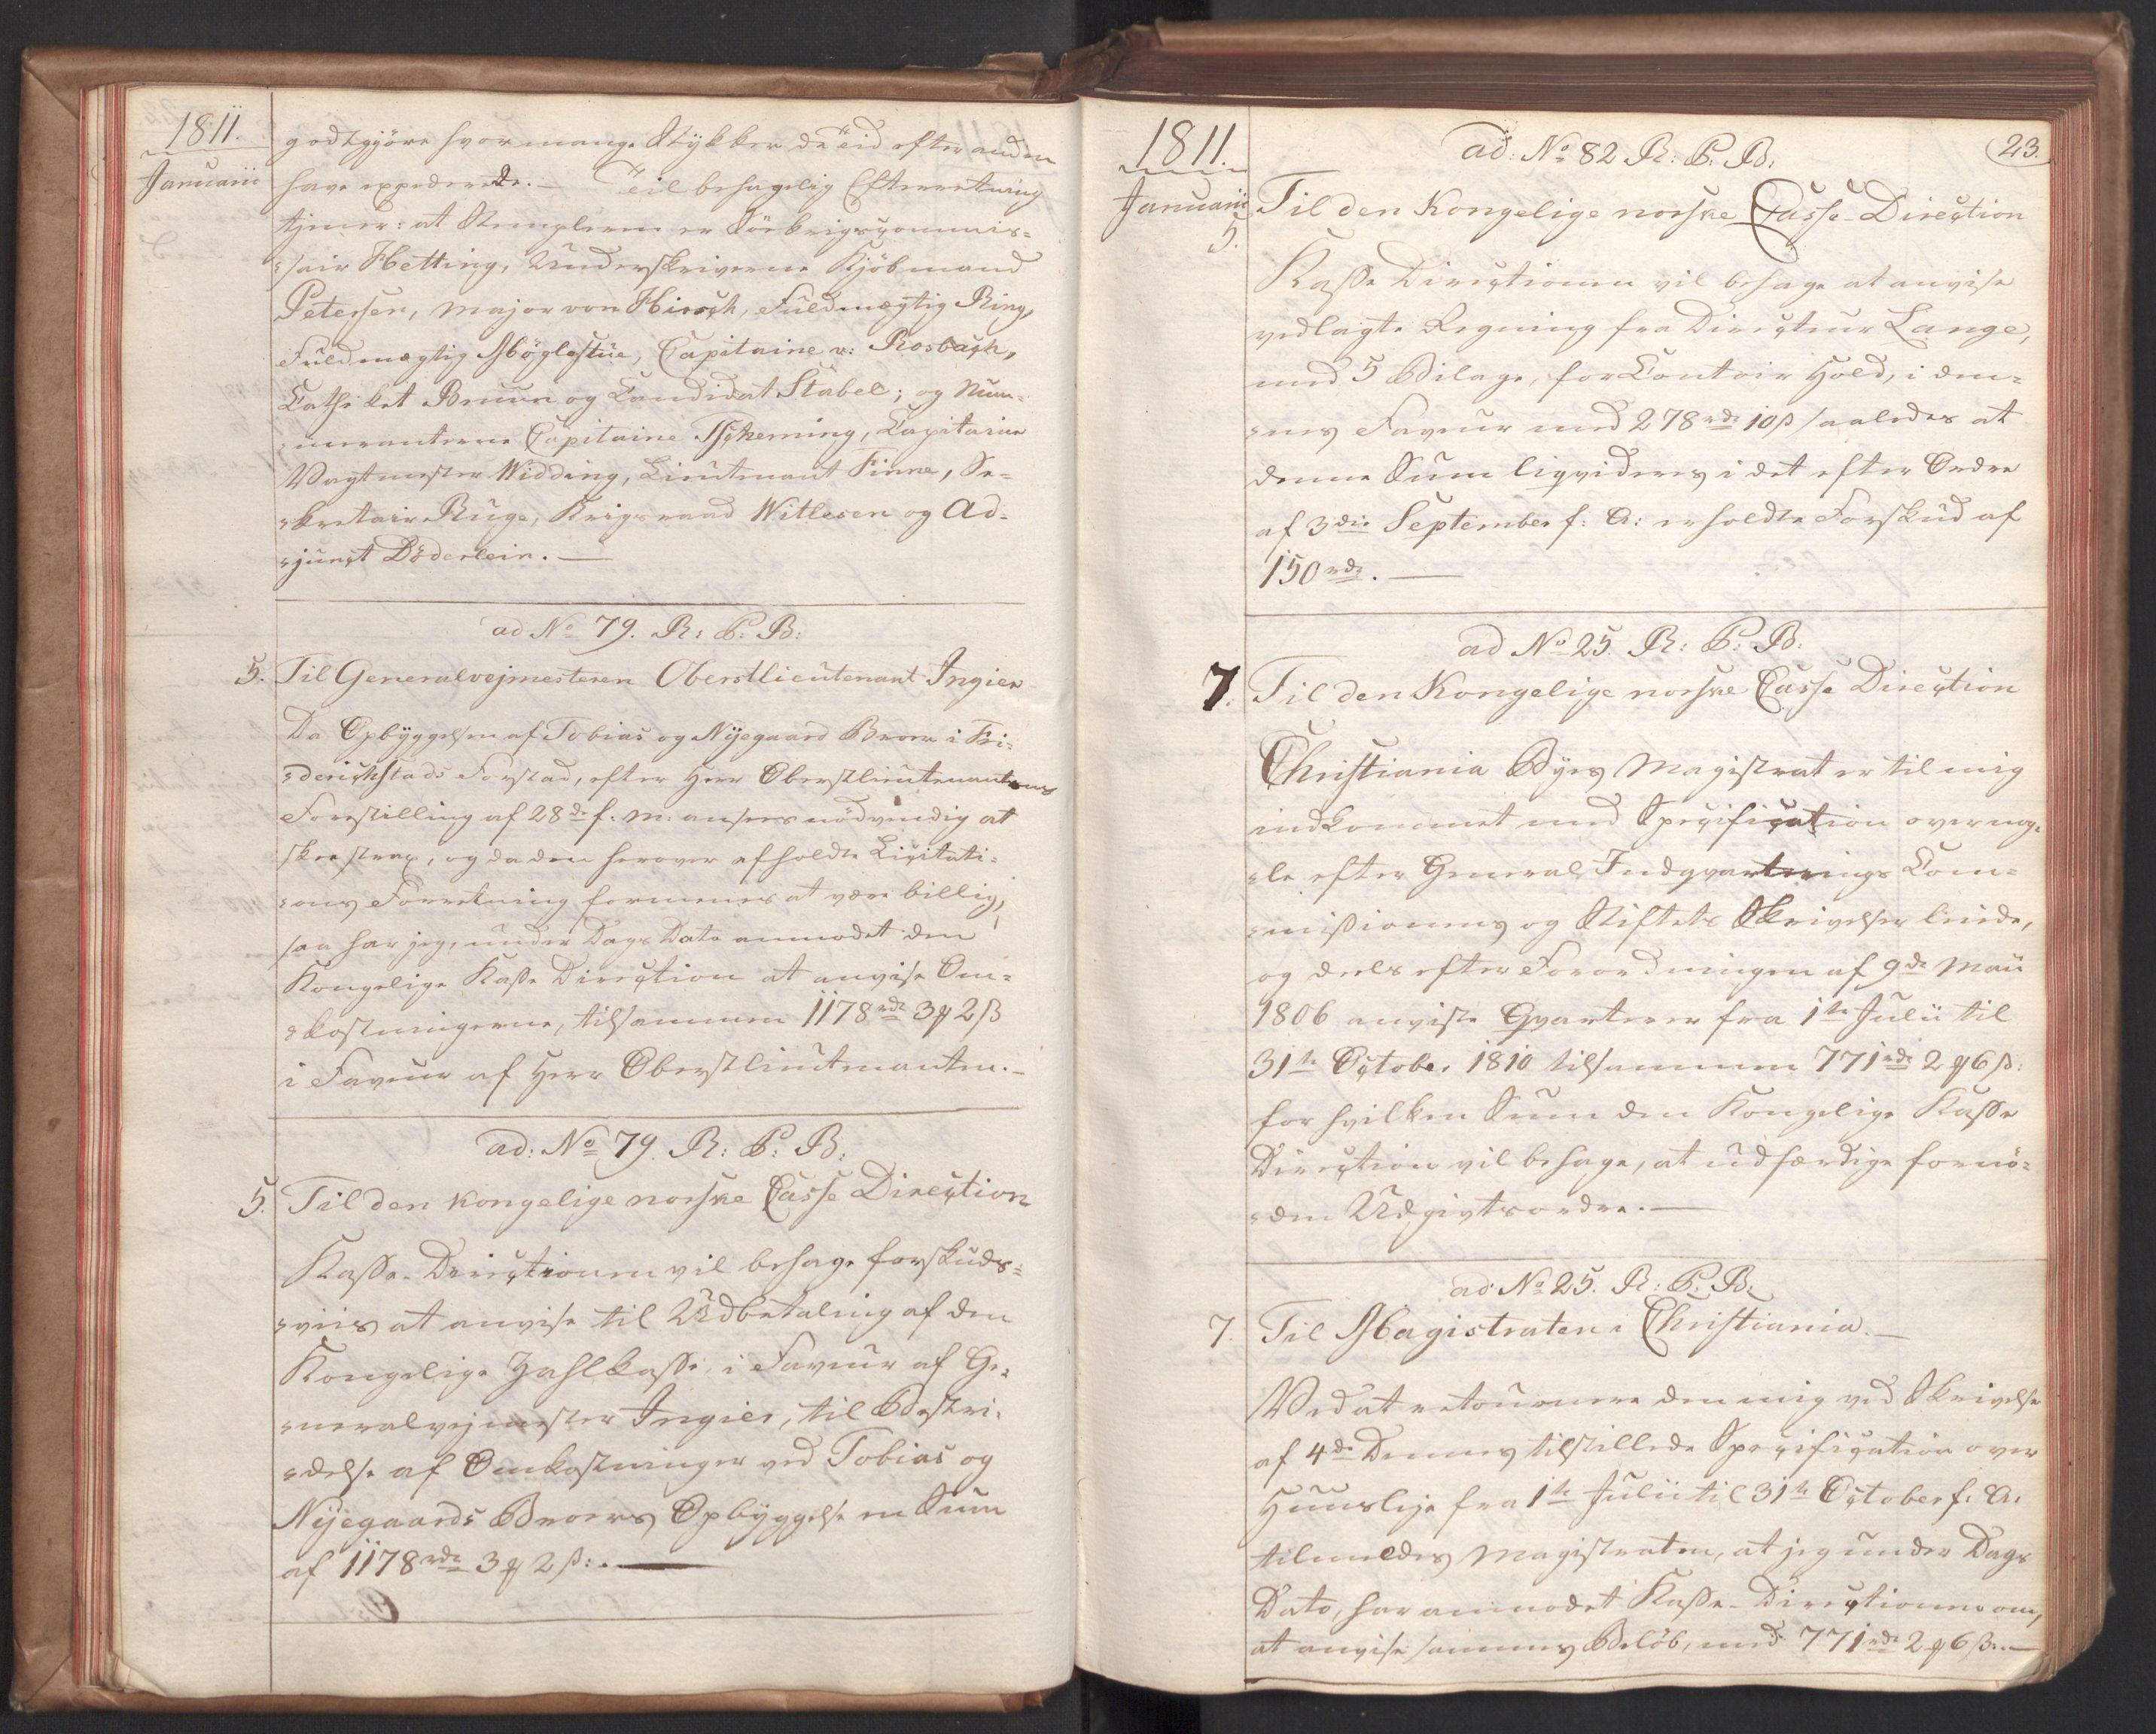 1811.
Januarii
godtgjöre hvor mange Stykker de Tiid efter anden
have expederede. — Til behagelig Efterretning
tjener: at Stemplerne er Söekrigscommis=
=sair Hetting, Underskriverne Kjöbmand
Petersen, Major von Hirsch, Fuldmægtig Ring,
Fuldmægtig Møglestue, Capitaine v: Rosbach,
Catheket Bruun og Candidat Stabel; og Num=
=meranterne Capitaine Tscherning, Capitaine
Vagtmester Widding, Lieutenant Finne, Se=
=kretair Ruge, Krigsraad Witlesen og Ad=
=junct Döderlein. —
ad No 79. R: P: B:
5. Til Generalvejmesteren Oberstlieutenant Ingier
Da Opbyggelsen af Tobias og Nyegaard Broer i Fri=
=derichstads Forstad, efter Herr Oberstlieutenantens
Forestilling af 28de f. M: ansees nödvendig at
skee strax, og da den herover afholdte Licitati=
=ons Forretning formenes at være billig,
saa har jeg, under Dags Dato anmodet den
Kongelige Kasse Direction at anvise Om=
=kostningerne, tilsammen 1178 rdr 3 ꝣ 2 ß
i Faveur af Herr Oberstlieutenanten. —
ad: No 79. R: P: B:
5. Til den kongelige norske Casse Direction
Kasse-Directionen vil behage forskuds=
=viis at anvise til Udbetaling af den
Kongelige Zahlkasse, i Faveur af Ge=
=neralvejmester Ingier, til Bestri=
=delse af Omkostninger ved Tobias og
Nyegaards Broers Opbyggelse en Sum
af 1178 rdr 3 ꝣ 2 ß: . —
1811.
23.
Januarii
ad: No 82 R: P: B:
5.
Til den Kongelige norske Casse-Direction
Kasse Directionen vil behage at anvise
vedlagte Regning fra Directeur Lange,
med 5 Bilage, for Contoir Hold, i den=
=nes Faveur med 278 rdr 10 ß saaledes at
denne Sum liqvideres i det efter Ordre
af 3die September f: A: erholdte Forskud af
150 rdr. —
ad No 25. R: P: B:
7. Til den Kongelige norske Casse Direction
Christiania Byes Magistrat er til mig
indkommet med Specification over nog=
=le efter General Indqvarterings Com=
=missionens og Stiftets Skrivelser leiede,
og deels efter Forordningen af 9de Maii
1806 anviste Qvarterer fra 1te Julii til
31te October 1810 tilsammen 771 rdr 2 ꝣ 6 ß:
for hvilken Sum den Kongelige Kasse
Direction vil behage, at udfærdige fornö=
=den Udgivtsordre. —
ad No 25. R: P: B:
7. Til Magistraten i Christiania. —
Ved at retournere den mig ved Skrivelse
af 4de Dennes tilstillede Specification over
Huusleje fra 1te Julii til 31te October f: A:
tilmeldes Magistraten, at jeg under Dags
Dato, har anmodet Kasse-Directionen om,
at anvise sammes Belöb, med 771 rdr 2 ꝣ 6 ß. —